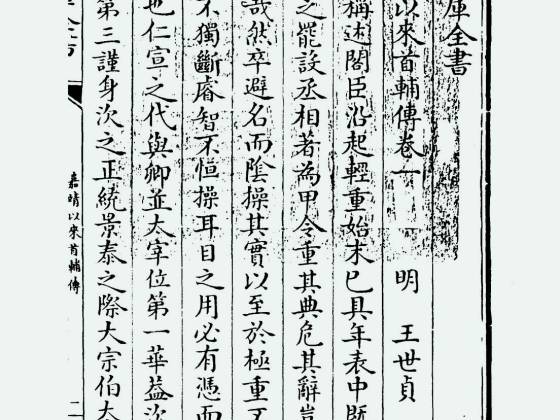 庫全書
以來首輔傳卷一 明 王世貞
稱述閣臣沿起輕重始末已具年表中
之罷設丞相著為甲令重其典危其辭豈
哉然卒避名而陰操其實以至於極重
不獨斷睿智不恒操耳目之用必有憑而
也仁宣之代與卿並太宰位第一華益次
第三謹身次之正統景泰之際大宗伯
嘉靖以來首輔傳 二